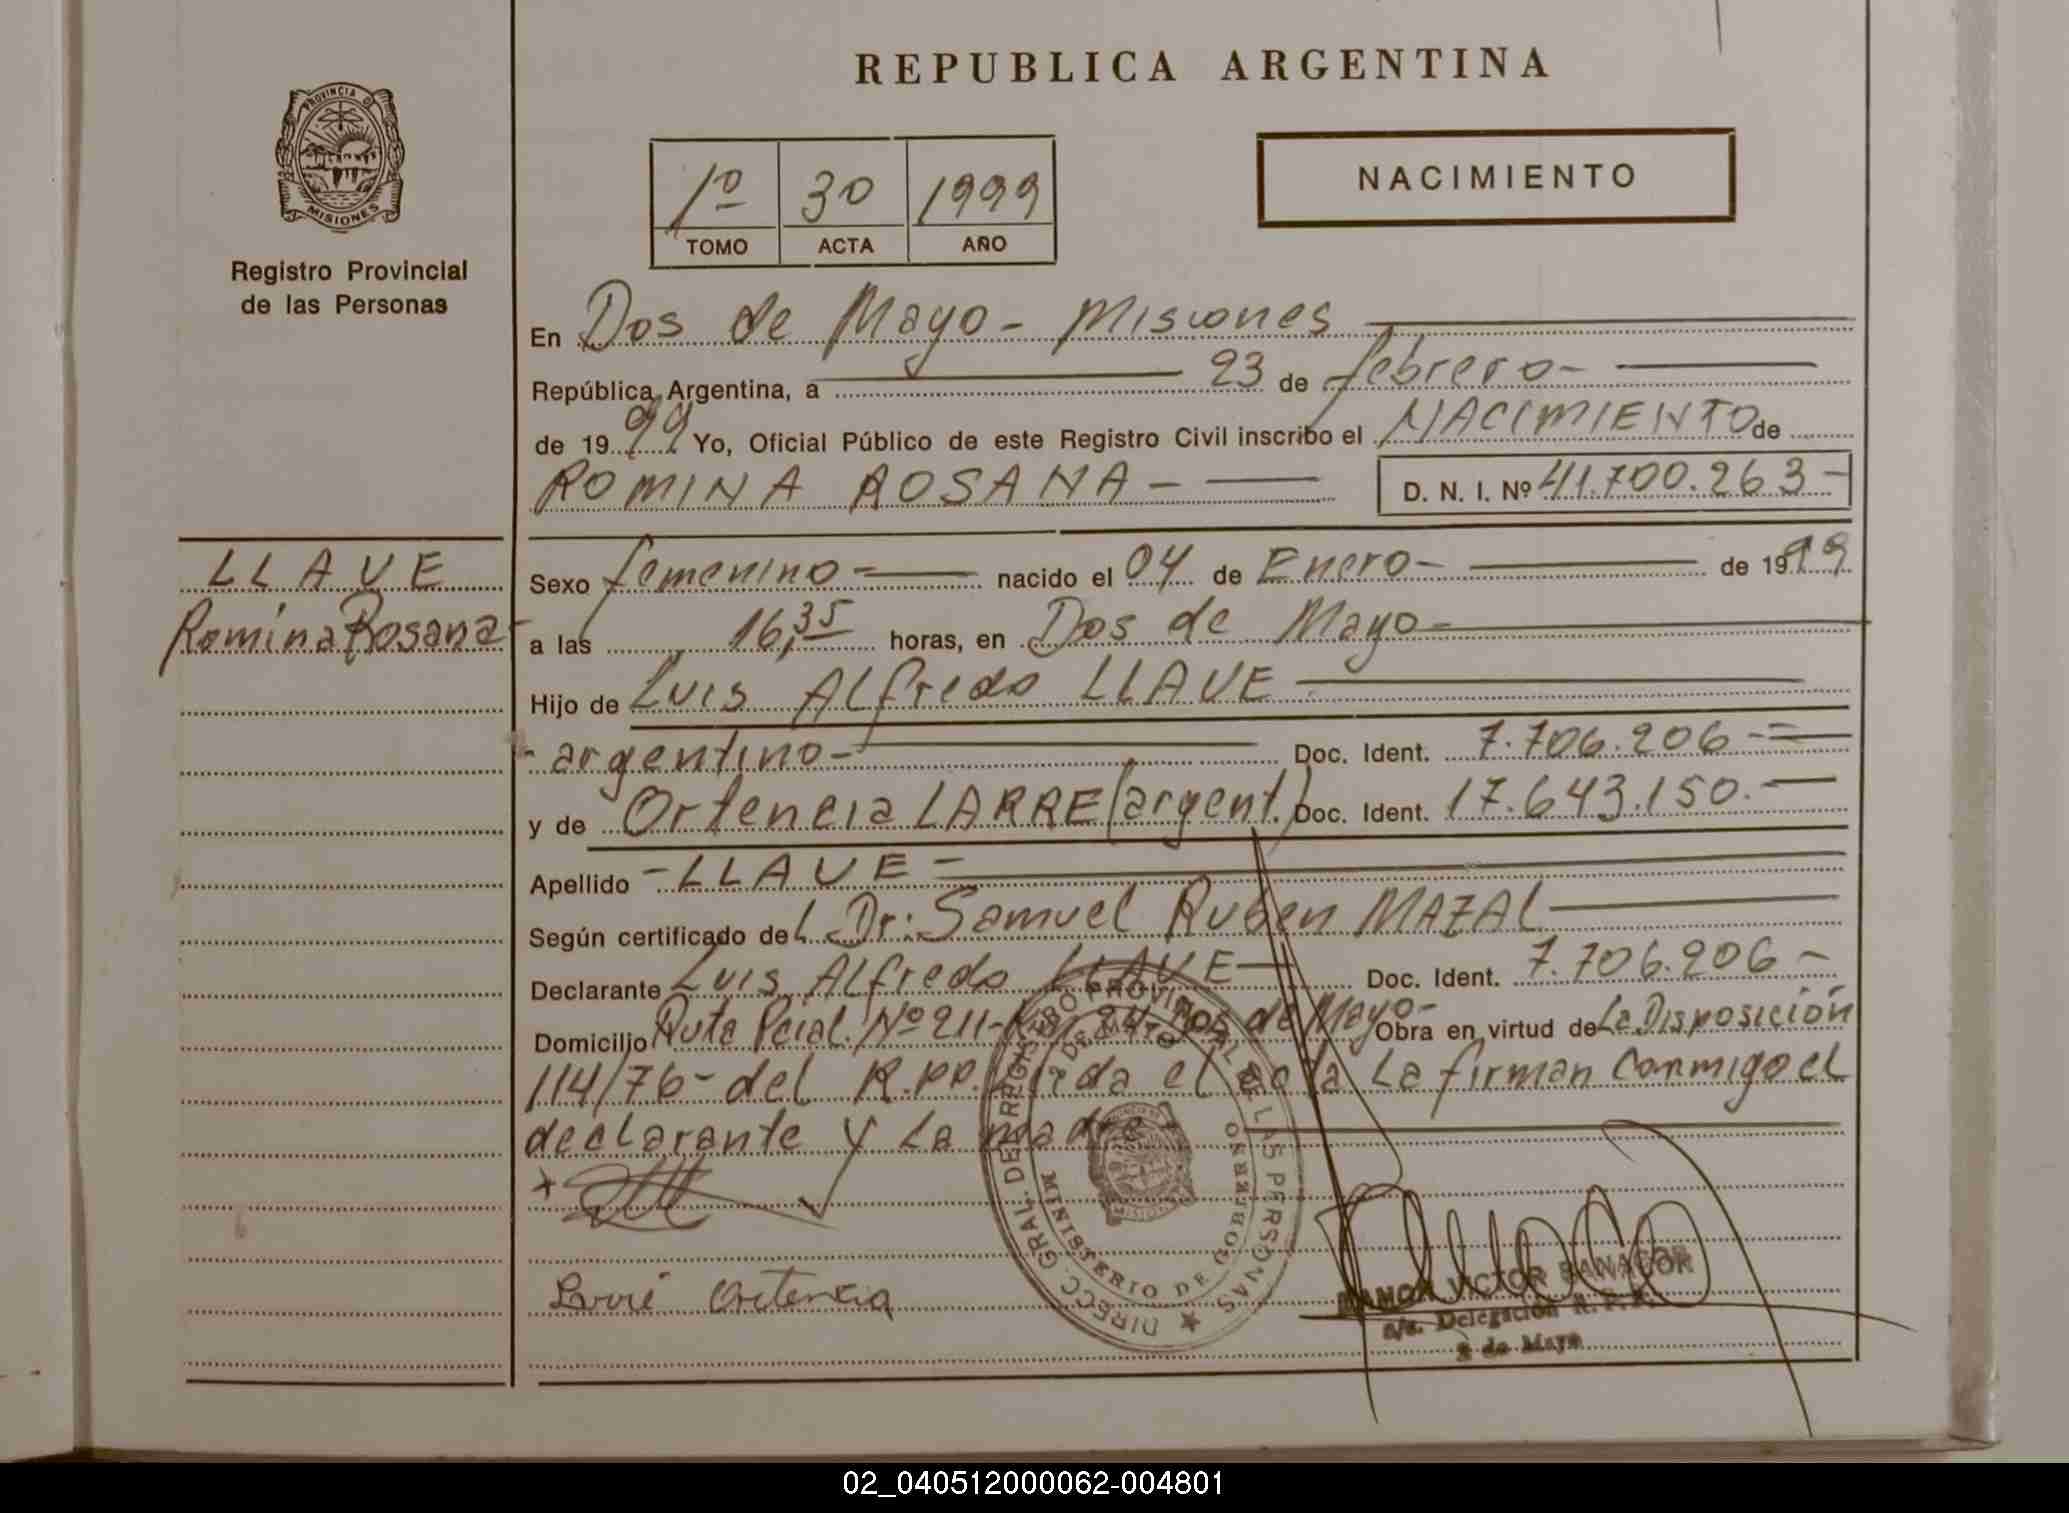 REPUBLICA ARGENTINA
PROVINCIA DE
MISIONES
Registro Provincial
de las Personas
1º 30 1999
TOMO ACTA AÑO
NACIMIENTO
En Dos de Mayo - Misiones
República Argentina, a 23 de febrero -
de 1999 Yo, Oficial Público de este Registro Civil inscribo el NACIMIENTO de
ROMINA ROSANA - D. N. I. Nº 41.700.263 -
LLAVE
Romina Rosana -
Sexo femenino - nacido el 04 de Enero - de 1999
a las 16,35 horas, en Dos de Mayo -
Hijo de Luis Alfredo LLAVE
- argentino - Doc. Ident. 7.706.206 -
y de Ortencia LARRE (argent.) Doc. Ident. 17.643.150. -
Apellido - LLAVE -
Según certificado del Dr: Samuel Ruben MAZAL
Declarante Luis Alfredo LLAVE Doc. Ident. 7.706.206 -
Domicilio Ruta Pcial. Nº 211 - Km 24 Dos de Mayo - Obra en virtud de La Disposición
114/76 - del R.PP. Leída el acta La firman conmigo el
declarante y La madre
DIRECC. GRAL. DEL REGISTRO PROVINCIAL DE LAS PERSONAS
2 DE MAYO
MINISTERIO DE GOBIERNO
MISIONES
Larré Ortencia
RAMON VICTOR
Delegación R. P. P.
2 de Mayo
02_040512000062-004801